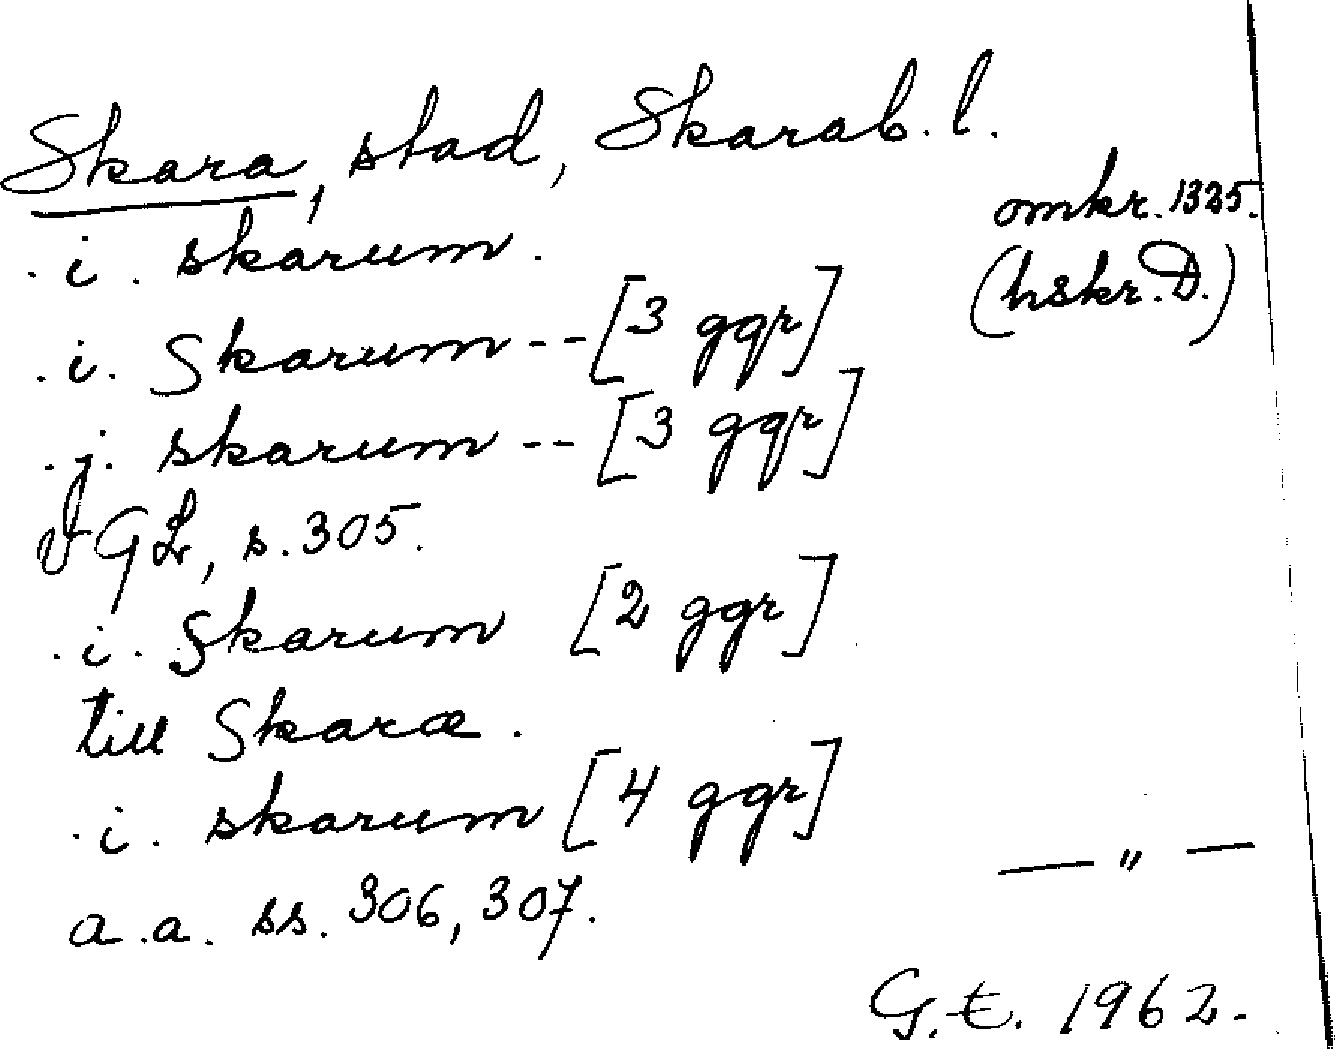 Skara, stad, Skarab. l.
omkr. 1325.
.i. skarum.
(hskr. D.)
.i. Skarum -- [3 ggr]
.j. skarum -- [3 ggr]
VGL, s. 305.
.i. Skarum [2 ggr]
till Skaræ.
.i. skarum [4 ggr]
— " —
a.a. ss. 306, 307.
G.E. 1962.